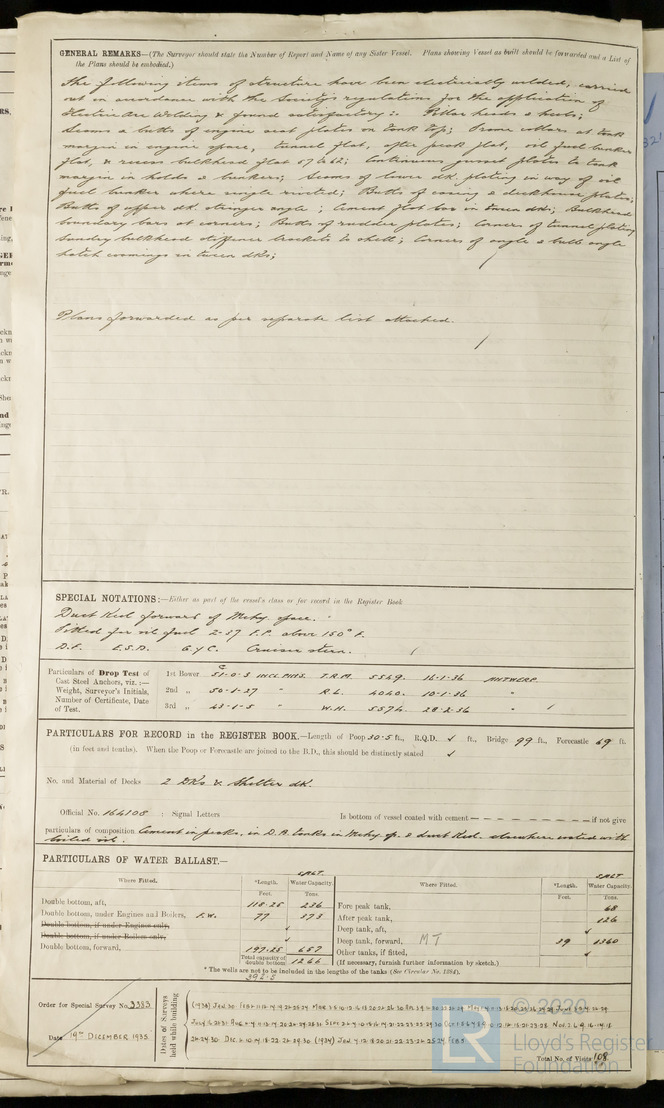 GENERAL REMARKS—(The Surveyor should state the Number of Report and Name of any Sister Vessel. Plans showing Vessel as built should be forwarded and a List of
the Plans should be embodied.)
The following items of structure have been electrically welded, carried
out in accordance with the Society's regulations for the application of
Electric Arc Welding & found satisfactory:- Pillar heads & heels;
Seams & butts of engine seat plates on tank top; Frame collars at tank
margin in engine space, tunnel flat, after peak flat, oil fuel bunker
flat, & recess bulkhead flat 57 to 62; Continuous gusset plates to tank
margin in holds & bunkers; Seams of lower dk. plating in way of oil
fuel bunker where single riveted; Butts of casing & deckhouse plates;
Butts of upper dk. stringer angle; Cement flat bar in tween dks; Bulkhead
boundary bars at corners; Butts of rudder plates; Corners of tunnel plating
Sundry bulkhead stiffener brackets to shell; Corners of angle & bulb angle
hatch coamings in tween dks;
Plans forwarded as per separate list attached.
SPECIAL NOTATIONS:—Either as part of the vessel's class or for record in the Register Book
Duct Keel forward of Mchy. space.
Fitted for oil fuel 2-37 F.P. above 150° F.
D.F. E.S.D. GyC. Cruiser stern.
Particulars of Drop Test of 1st Bower 51-0-3 INCL. PINS. T.R.M. 5549. 16-1-36 ANTWERP.
Cast Steel Anchors, viz.:—
Weight, Surveyor's Initials, 2nd „ 50-1-27 " R.L. 4040. 10-1-36 "
Number of Certificate, Date
of Test. 3rd „ 43-1-5 " W.H. 5574. 28-2-36 "
PARTICULARS FOR RECORD in the REGISTER BOOK.—Length of Poop 30.5 ft., R.Q.D. ✓ ft., Bridge 99 ft., Forecastle 69 ft.
(in feet and tenths). When the Poop or Forecastle are joined to the B.D., this should be distinctly stated ✓
No. and Material of Decks 2 Dks & Shelter dk.
Official No. 164108 : Signal Letters Is bottom of vessel coated with cement if not give
particulars of composition Cement in peaks, in D.B. tanks in Mchy. sp. & duct keel. elsewhere coated with
boiled oil.
PARTICULARS OF WATER BALLAST.—
Where Fitted. *Length. SALT Water Capacity. Where Fitted. *Length. SALT Water Capacity.
Feet. Tons. Feet. Tons.
Double bottom, aft, 118.25 236 Fore peak tank, 68
Double bottom, under Engines and Boilers, F.W. 77 373 After peak tank, 126
Double bottom, if under Engines only, ✓ Deep tank, aft, ✓
Double bottom, if under Boilers only, ✓ Deep tank, forward, MT 39 1360
Double bottom, forward, 197.25 657 Other tanks, if fitted, ✓
Total capacity of double bottom 1266 (If necessary, furnish further information by sketch.)
* The walls are not to be included in the lengths of the tanks (See Circular No. 1284).
392.5
Order for Special Survey No. 3383
Date 19TH DECEMBER 1935
Dates of Surveys held while building
Total No. of Visits 108
© 2020
LR
Lloyd's Register
Foundation